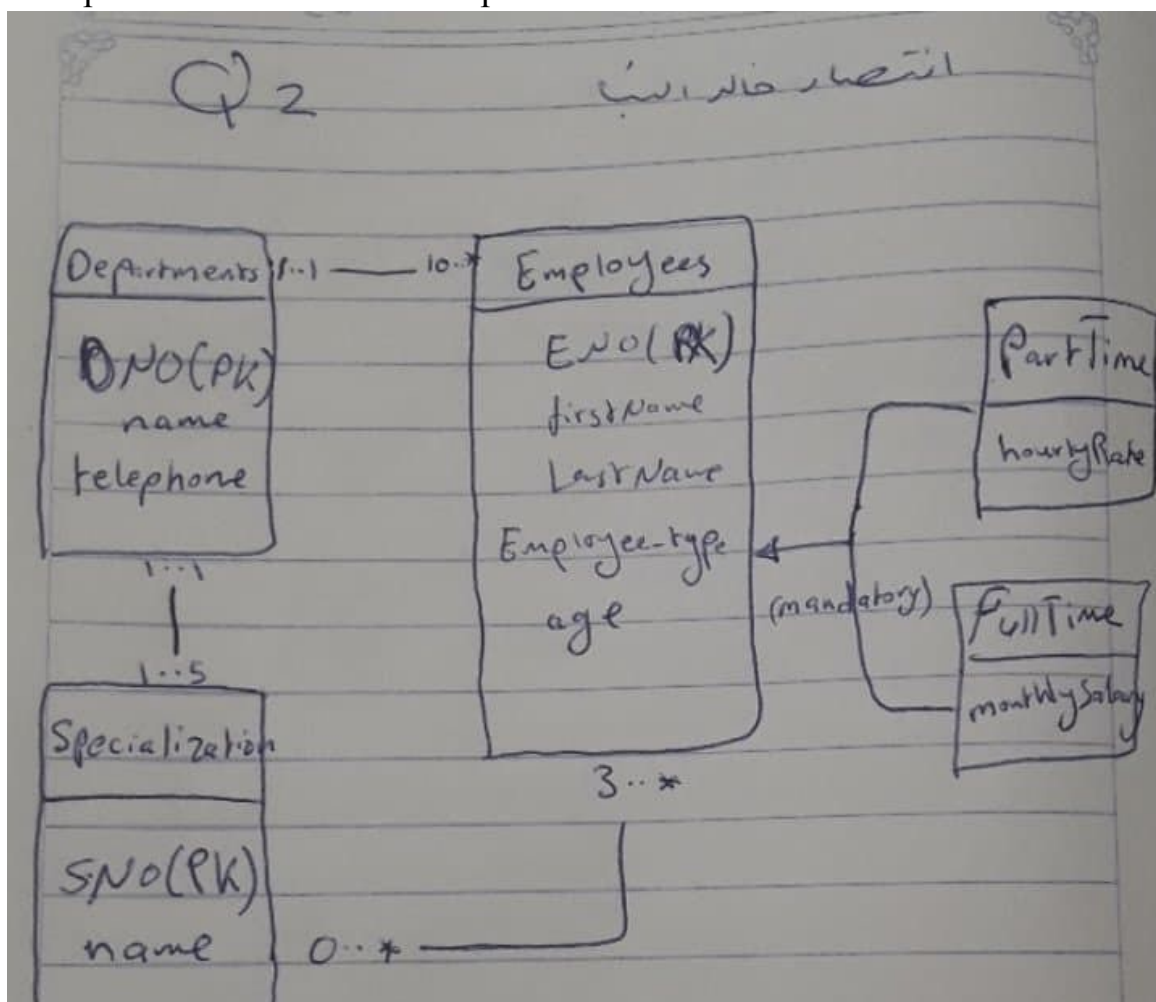 Q2
انتصار خالد البنا
Departments
1..1
10..*
Employees
DNO(PK)
name
telephone
ENO(PK)
firstName
LastName
Employee-type
age
PartTime
hourlyRate
(mandatory)
FullTime
monthlySalary
1..1
1..5
Specialization
SNO(PK)
name
3..*
0..*